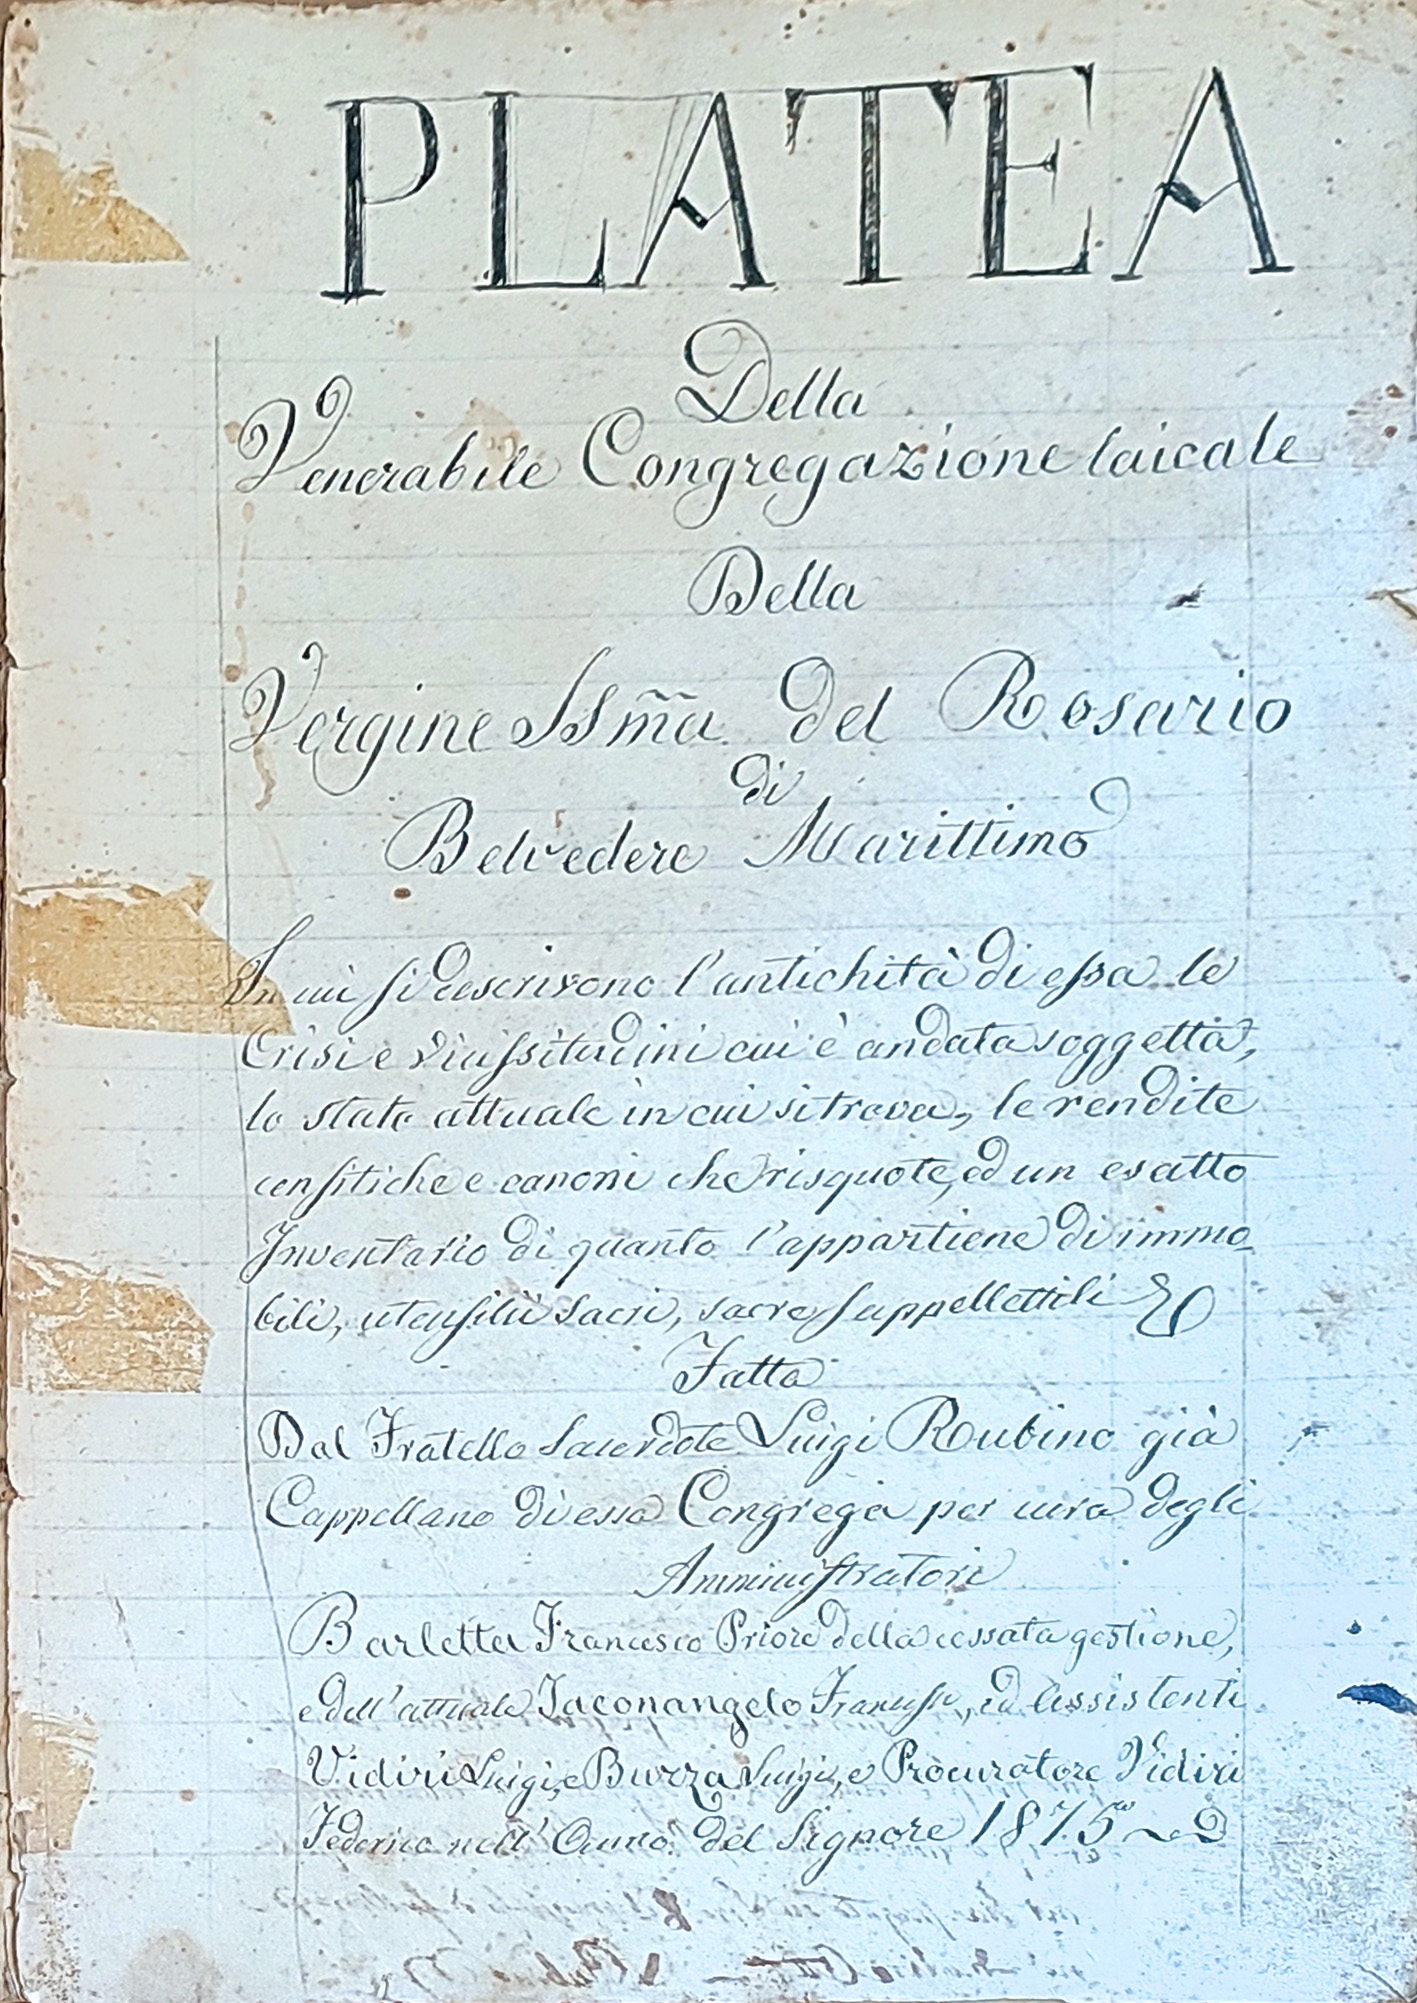 PLATEA
Della
Venerabile Congregazione laicale
Della
Vergine SSm̃a del Rosario
di
Belvedere Marittimo
In cui si descrivono l'antichità di essa le
Crisi e vicissitudini cui è andata soggetta,
lo stato attuale in cui si trova, le rendite
censitiche e canoni che risquote, ed un esatto
Inventario di quanto l'appartiene di immo-
bili, utensilii sacri, sacre suppellettili &
Fatta
Dal Fratello Sacerdote Luigi Rubino già
Cappellano di essa Congrega per cura degli
Amministratori
Barletta Francesco Priore della cessata gestione,
e dell'attuale Iaconangelo Francesco, ed Assistenti
Vidiri Luigi, e Burza Luigi, e Procuratore Vidiri
Federico nell'Anno del Signore 1875